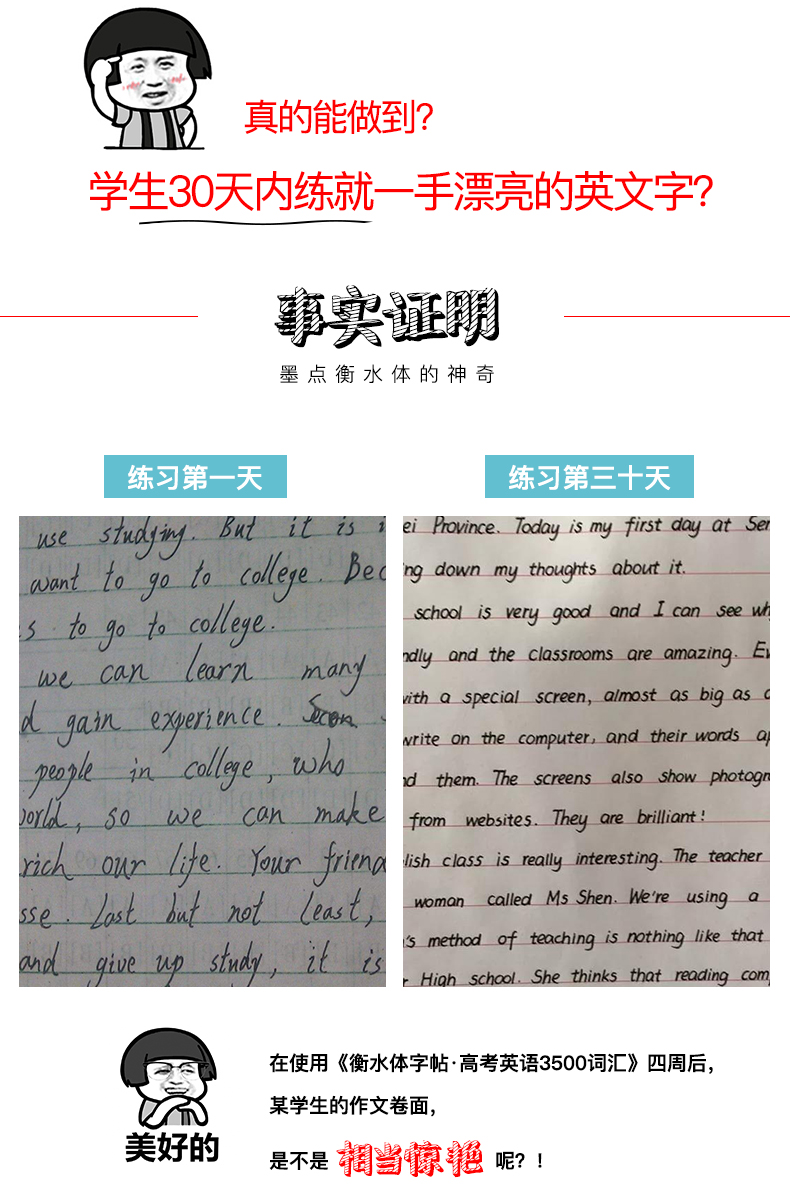 真的能做到？
学生30天内练就一手漂亮的英文字？
事实证明
墨点衡水体的神奇
练习第一天
练习第三十天
use studying. But it is
want to go to college. Bec
s to go to college.
we can learn many
d gain experience.
people in college, who
world, so we can make
rich our life. Your friend
sse. Last but not least,
and give up study, it is
ei Province. Today is my first day at Sen
ng down my thoughts about it.
school is very good and I can see wh
ndly and the classrooms are amazing. Ev
with a special screen, almost as big as a
write on the computer, and their words ap
nd them. The screens also show photogr
from websites. They are brilliant!
lish class is really interesting. The teacher
woman called Ms Shen. We're using a
's method of teaching is nothing like that
r High school. She thinks that reading com
美好的
在使用《衡水体字帖·高考英语3500词汇》四周后，
某学生的作文卷面，
是不是 相当惊艳 呢？！